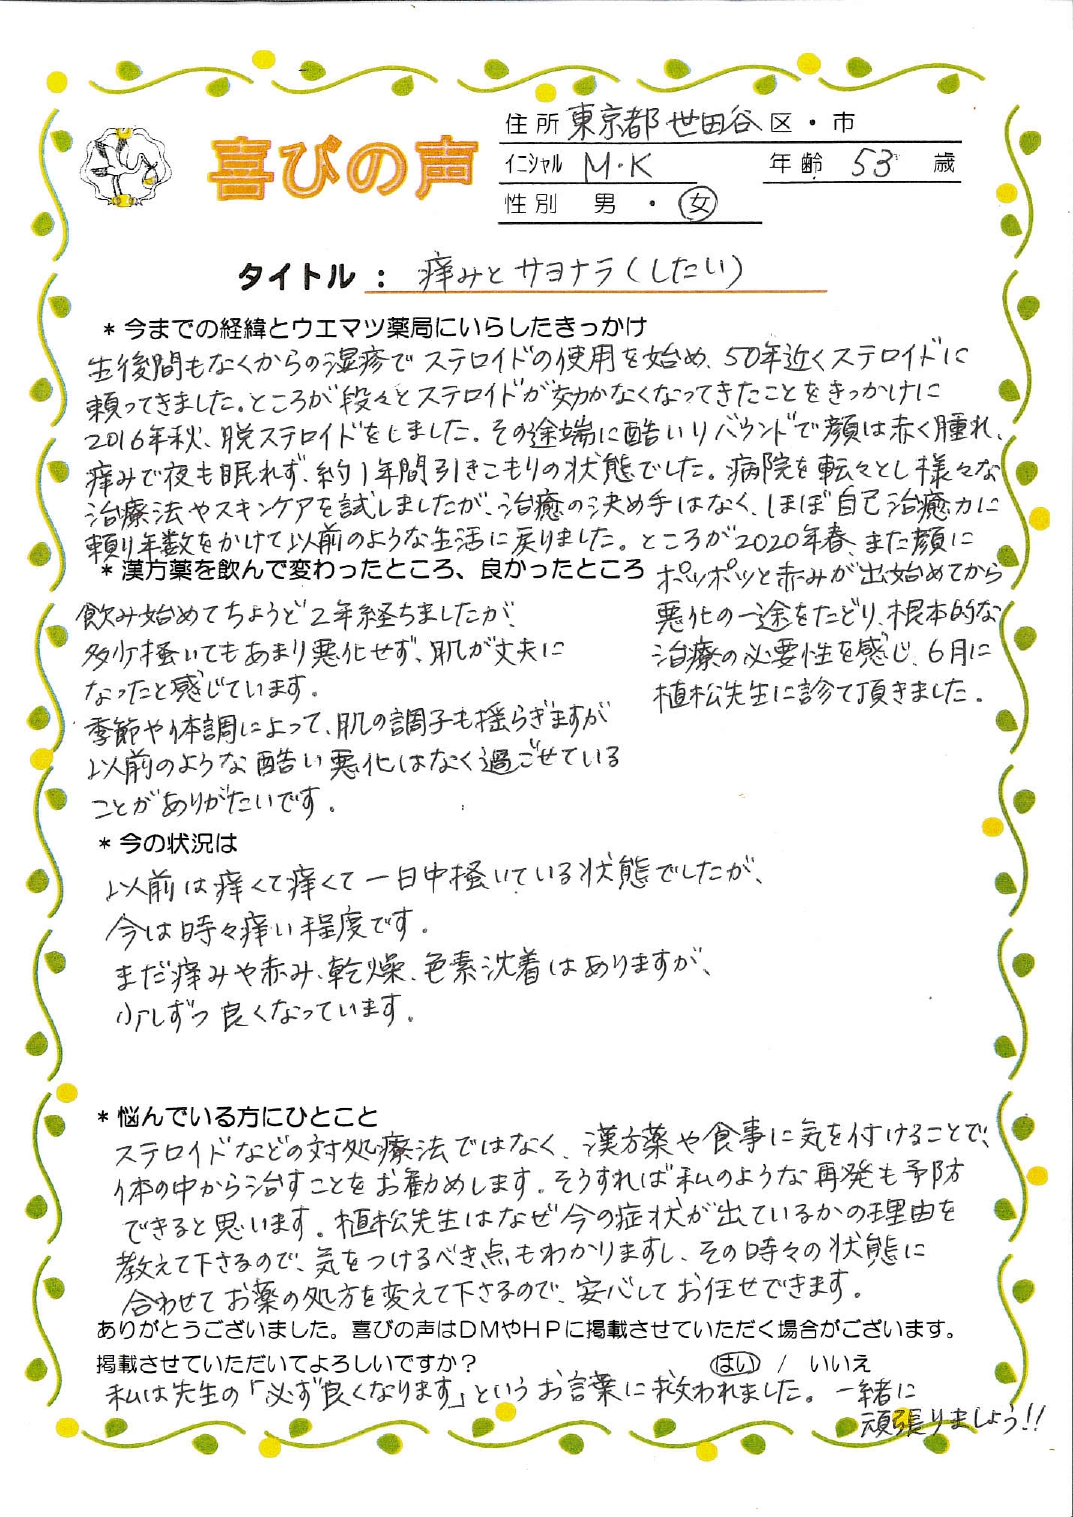 喜びの声
住所 東京都世田谷 区・市
ｲﾆｼｬﾙ M・K 年齢 53 歳
性別 男 ・ 女
タイトル： 痒みとサヨナラ(したい)
＊今までの経緯とウエマツ薬局にいらしたきっかけ
生後間もなくからの湿疹でステロイドの使用を始め、50年近くステロイドに
頼ってきました。ところが段々とステロイドが効かなくなってきたことをきっかけに
2016年秋、脱ステロイドをしました。その途端に酷いリバウンドで顔は赤く腫れ、
痒みで夜も眠れず、約1年間引きこもりの状態でした。病院を転々とし様々な
治療法やスキンケアを試しましたが、治癒の決め手はなく、ほぼ自己治癒力に
頼り年数をかけて以前のような生活に戻りました。ところが2020年春、また顔に
ポツポツと赤みが出始めてから
悪化の一途をたどり、根本的な
治療の必要性を感じ、6月に
植松先生に診て頂きました。
＊漢方薬を飲んで変わったところ、良かったところ
飲み始めてちょうど2年経ちましたが、
多少掻いてもあまり悪化せず、肌が丈夫に
なったと感じています。
季節や体調によって、肌の調子も揺らぎますが
以前のような酷い悪化はなく過ごせている
ことがありがたいです。
＊今の状況は
以前は痒くて痒くて一日中掻いている状態でしたが、
今は時々痒い程度です。
まだ痒みや赤み、乾燥、色素沈着はありますが、
少しずつ良くなっています。
＊悩んでいる方にひとこと
ステロイドなどの対処療法ではなく、漢方薬や食事に気を付けることで、
体の中から治すことをお勧めします。そうすれば私のような再発も予防
できると思います。植松先生はなぜ今の症状が出ているかの理由を
教えて下さるので、気をつけるべき点もわかりますし、その時々の状態に
合わせてお薬の処方を変えて下さるので、安心してお任せできます。
ありがとうございました。喜びの声はDMやHPに掲載させていただく場合がございます。
掲載させていただいてよろしいですか？ はい / いいえ
私は先生の「必ず良くなります」というお言葉に救われました。一緒に
頑張りましょう!!